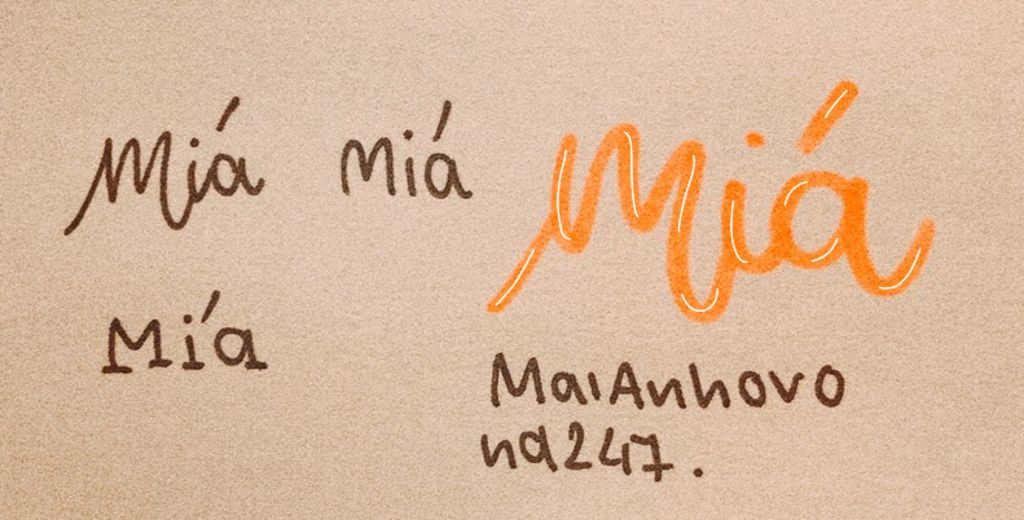 Miá
miá
Miá
Mía
MaiAnhovo
na247.